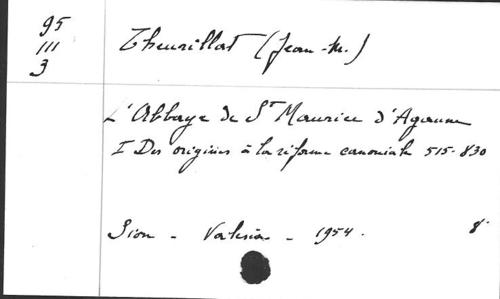 95
III
3
Theurillat (Jean-M.)
L'Abbaye de St Maurice d'Agaune
I Des origines à la réforme canoniale 515-830
Sion - Vallesia - 1954. 8°